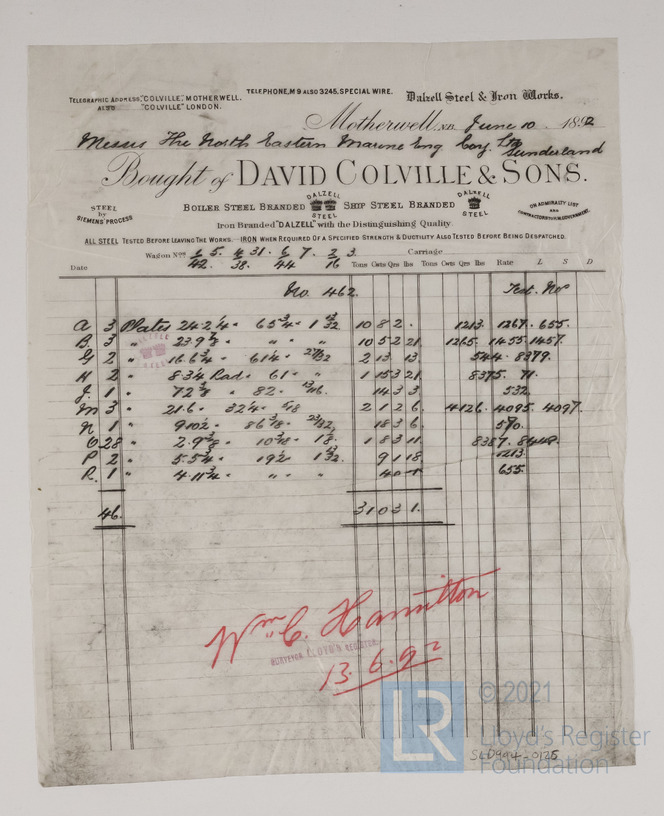 TELEGRAPHIC ADDRESS, "COLVILLE", MOTHERWELL.
ALSO "COLVILLE" LONDON.
TELEPHONE, M9 ALSO 3245, SPECIAL WIRE.
Dalzell Steel & Iron Works.
Motherwell, N.B. June 10 1892
Messrs The North Eastern Marine Eng Coy Ltd
Sunderland
Bought of DAVID COLVILLE & SONS.
STEEL by SIEMENS' PROCESS
BOILER STEEL BRANDED DALZELL STEEL SHIP STEEL BRANDED DALZELL STEEL
ON ADMIRALTY LIST AND CONTRACTORS TO H.M. GOVERNMENT.
Iron Branded "DALZELL" with the Distinguishing Quality
ALL STEEL TESTED BEFORE LEAVING THE WORKS. IRON WHEN REQUIRED OF A SPECIFIED STRENGTH & DUCTILITY ALSO TESTED BEFORE BEING DESPATCHED.
Wagon Nos 1/42. 5. 4/38. 31. 6/44 7. 2/16 3. Carriage
Date Tons Cwts Qrs lbs Tons Cwts Qrs lbs Rate L S D
No. 462. Test. Nos
A 3 Plates 24.2 1/4 " 65 3/4 " 1 13/32 10 8 2 . 1213. 1267. 655.
B. 3 " 23.9 7/8 " " " 10 5 2 21 1265. 1455. 1457.
G 2 " 16.6 3/4 " 61 1/4 " 27/32 2 13 . 13 544. 8379.
H 2 " 8.3 1/4 Rad. 61 " " 1 15 3 21 8375. 71.
J. 1 " 72 3/8 " 82 " 13/16. 14 3 3 532.
M 3 " 21.6 " 32 1/4 " 5/8 2 1 2 6 4126. 4095. 4097.
N 1 " 9.10 1/2 " 86 3/8 " 23/32. 18 3 6 570.
O 28 " 2.9 3/8 " 10 3/8 " 1 1/8. 1 8 3 11 8387. 8448.
P 2 " 5.5 3/4 " 19 1/2 " 1 13/32. 9 1 18 1213.
R. 1 " 4.11 3/4 " " " 4 0 1 655.
46. 31 0 3 1.
Wm C. Hamilton
SURVEYOR LLOYD'S REGISTER
13.6.92
LR
© 2021
Lloyd's Register
Foundation
SLD994-0125